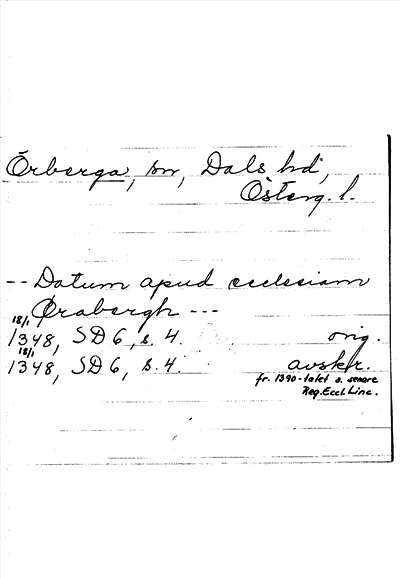 Örberga, sn, Dals hd,
Österg. l.
-- Datum apud ecclesiam
Ørabergh ---
18/1
1348, SD 6, s. 4. orig.
18/1
1348, SD 6, s. 4. avskr.
fr. 1390-talet o. senare
Reg. Eccl. Linc.